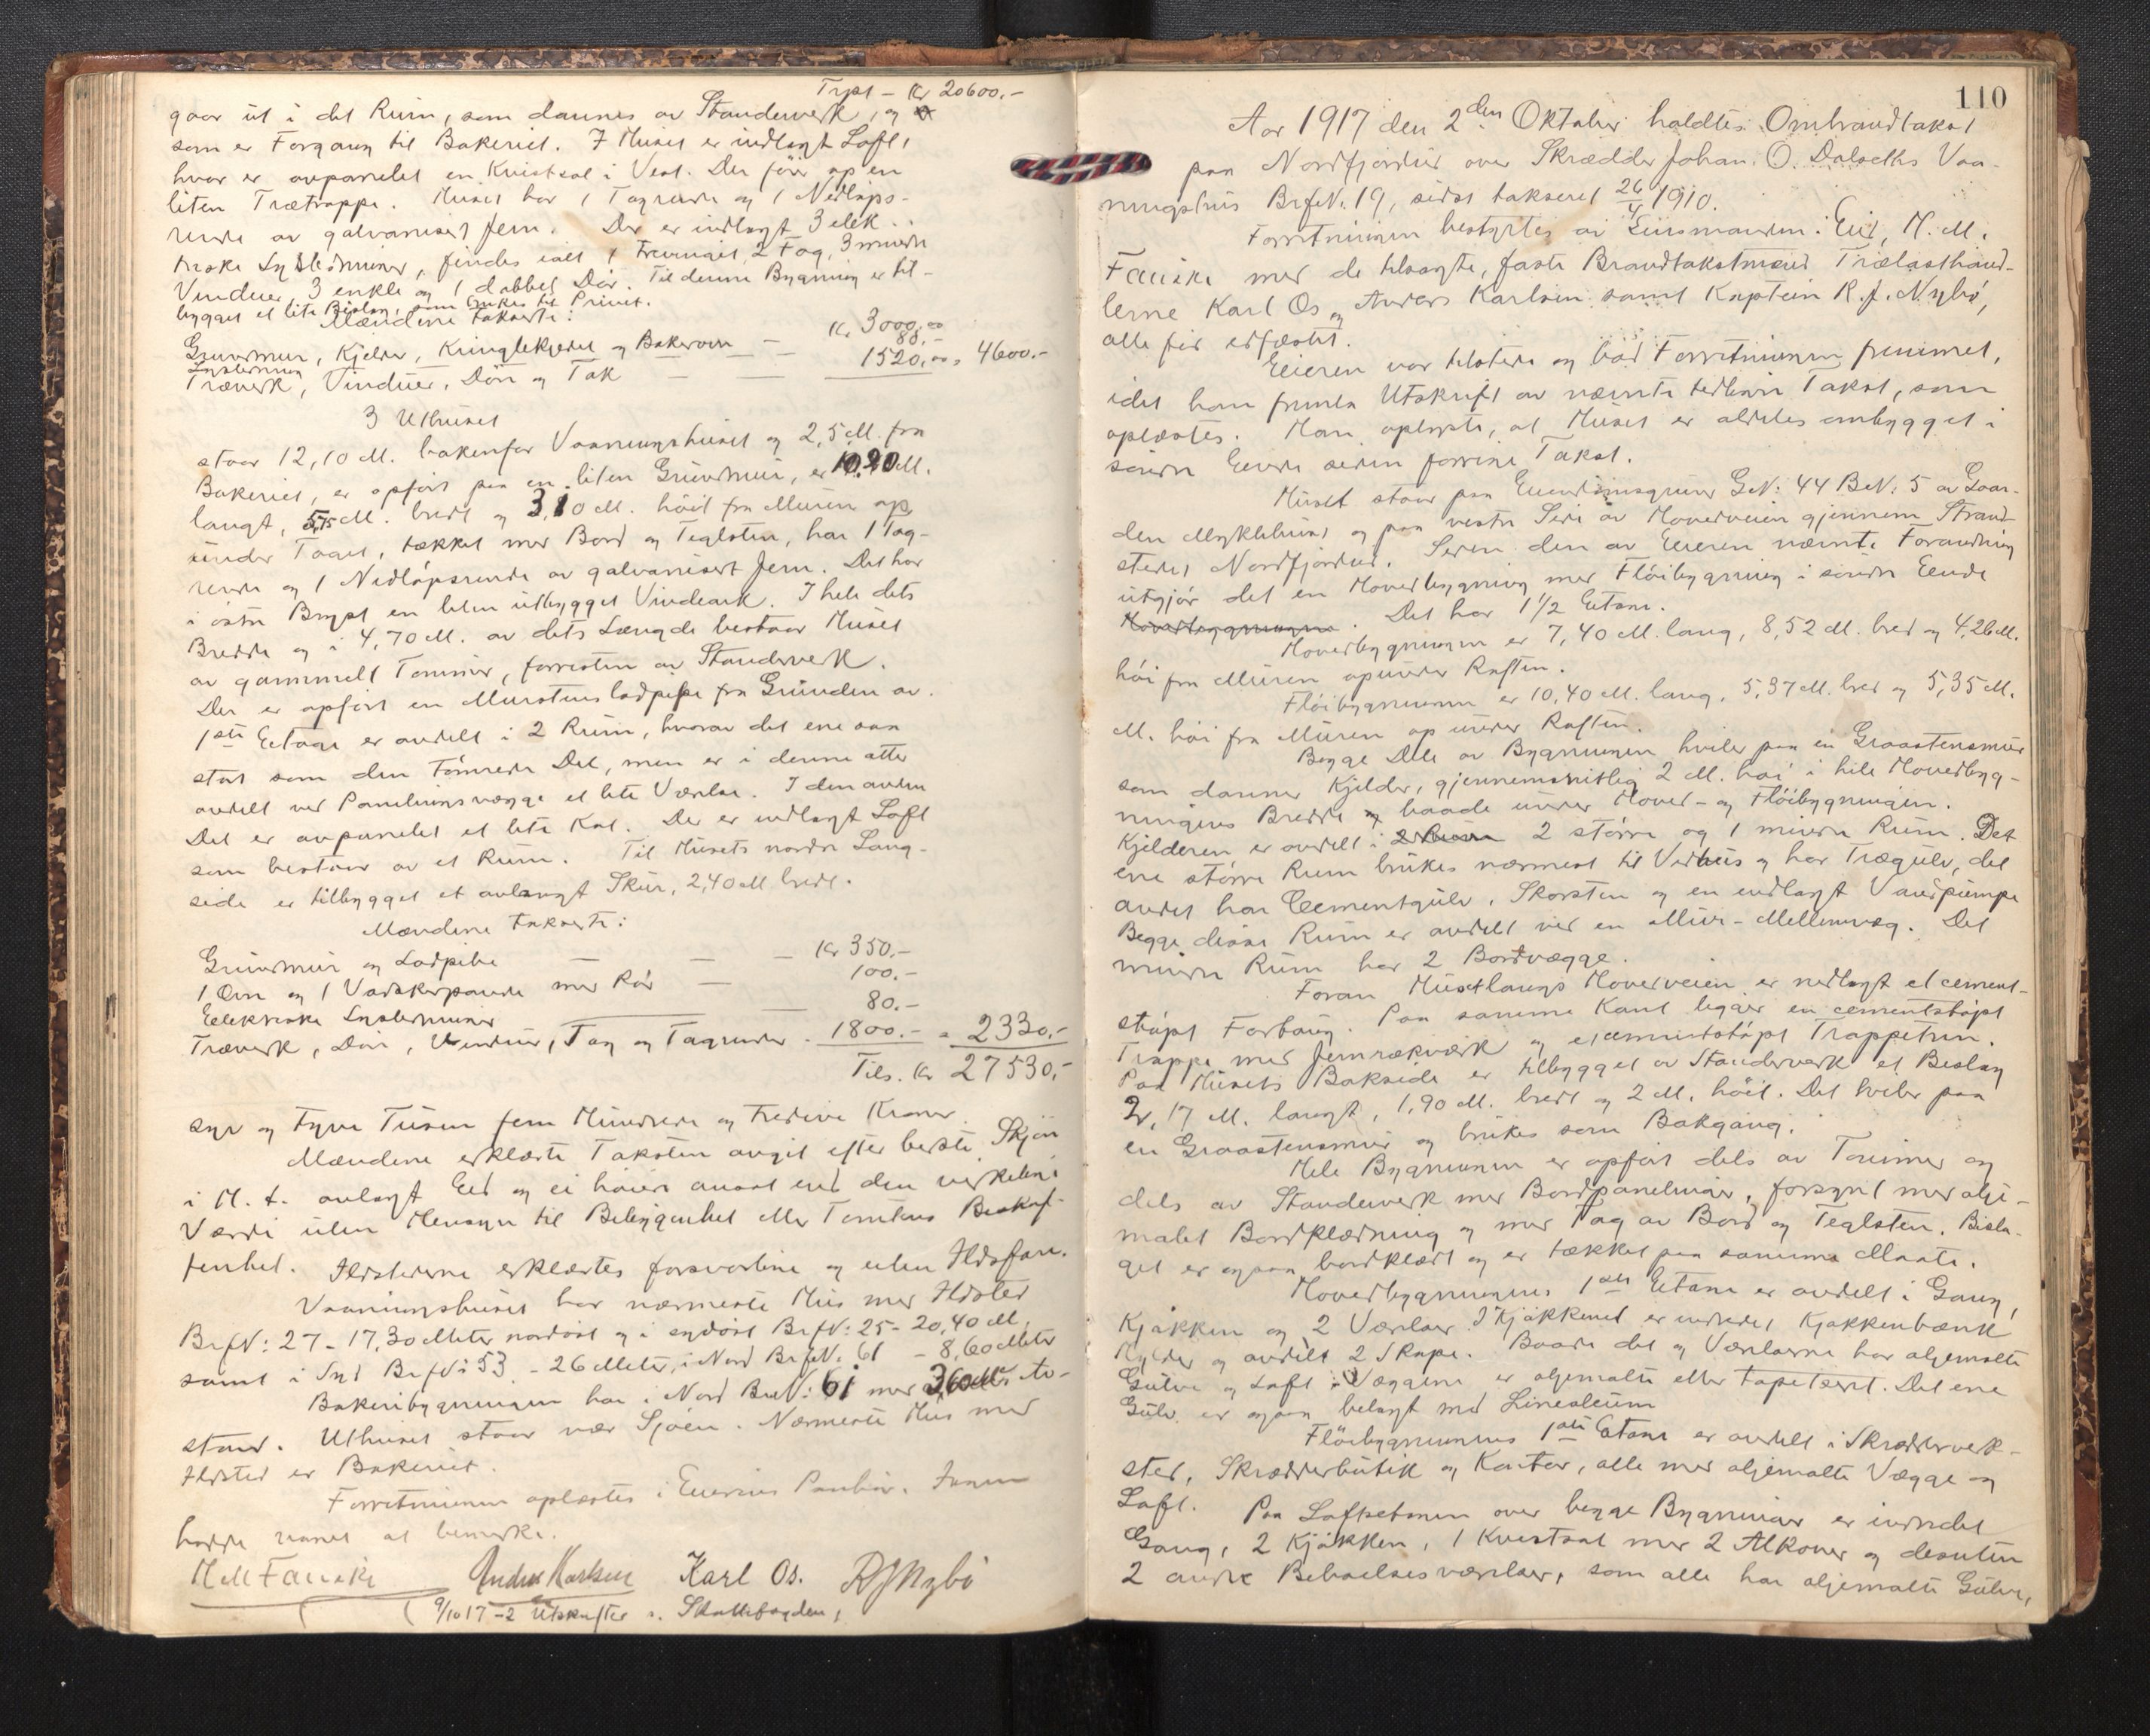 Trpt - Kr 20600.-
gaar ut i det Rum, som dannes av Standerverk, og
som er Forgang til Bakeriet. I Huset er indlagt Loft,
hvor er avpanelet en Kvistsal i Vest. Der fører op en
liten Trætrappe. Huset har 1 Tagrende og 1 Nedløps-
rende av galvaniseret Jern. Der er indlagt 3 elek-
triske Lysledninger, findes ialt 1 2 Fag, 3 mindre
Vinduer, 3 enkle og 1 dobbel Dør. Til denne Bygning er til-
bygget et lite Bislag, som brukes til Privet.
Mændene takserte:
Grundmur, Kjelder, Kringlekjedel og Bakerovn - Kr. 3000,00
Lysledning 80.-
Træverk, Vinduer, Døre og Tak - - 1520,00 = 4600.-
3 Uthuset
staar 12,10 M. bakenfor Vaaningshuset og 2,5 M. fra
Bakeriet, er opført paa en liten Grundmur, er 10,90 M.
langt, 5,75 M. bredt og 3,10 M. høit fra Muren op
under Taget, tækket med Bord og Teglsten, har 1 Tag-
rende og 1 Nedløpsrende av galvanisert Jern. Det har
i østre Bryst en liten utbygget Vindeark. I hele dets
Bredde og i 4,70 M. av dets Længde bestaar Huset
av gammelt Tømmer, forresten av Standerverk.
Der er opført en Murstensladpipe fra Grunden av.
1ste Etage er avdelt i 2 Rum, hvorav det ene saa
stort som den tømrede Del, men er i denne atter
avdelt ved Panelingsvægge et lite Værelse. I den anden
Del er avpanelet et lite Kot. Der er indlagt Loft
som bestaar av et Rum. Til Husets nordre Lang-
side er tilbygget et avlangt Skur, 2,40 M bredt.
Mændene takserte:
Grundmur og Ladpibe - - - Kr 350.-
1 Ovn og 1 Vadskerpande med Rør - 100.-
Elektriske Lysledninger 80.-
Træverk, Døre, Vinduer, Tag og Tagrender - 1800.- = 2330.-
Tils. Kr 27530,-
syv og tyve Tusen fem Hundrede og tredive Kroner.
Mændene erklærte Taksten avgit efter bedste Skjøn
i H. t. avlagt Eed og ei høiere ansat end den virkelige
Værdi uten Hensyn til Beliggenhet eller Tomtens Beskaf-
fenhet. Ildstederne erklærtes forsvarlige og uten Ildsfare.
Vaaningshuset har nærmeste Hus med Ildsted
BrfN: 27 - 17,30 Meter nordøst og i sydøst BrfN: 25 - 20,40 M,
samt i Syd BrfN: 53 - 26 Meter, i Nord BrfN. 61 - 8,60 Meter
Bakeribygningen har i Nord BrN: 61 med 3,60 M's Av-
stand. Uthuset staar nær Sjøen. Nærmeste Hus med
Ildsted er Bakeriet.
Forretningen oplæstes i Eierens Paahør. Ingen
hadde noget at bemerke.
H M Faueske Anders Karlsen Karl Os. R J Nybø
(9/10 17 - 2 Utskrifter s. Skattefogden,
110
Aar 1917 den 2den Oktober holdtes Ombrandtakst
paa Nordfjordeid over Skrædder Johan O. Dalseths Vaa-
ningshus BrfN. 19, sidst takseret 26/4 1910.
Forretningen bestyrtes av Lensmanden i Eid, H. M.
Faueske med de tilsagte, faste Brandtakstmænd Trælasthand-
lerne Karl Os og Anders Karlsen samt Kaptein R. J. Nybø,
alle før edfæstet.
Eieren var tilstede og bad Forretningen fremmet,
idet han fremla Utskrift av nævnte tidligere Takst, som
oplæstes. Han oplyste, at Huset er aldeles ombygget i
søndre Ende siden forrige Takst.
Huset staar paa Eiendomsgrund GN: 44 BN: 5 av Gaar-
den Myklebust og paa vestre Side av Hovedveien gjennem Strand-
stedet Nordfjordeid. Siden den av Eieren nævnte Forandring
utgjør det en Hovedbygning med Fløibygning i søndre Ende
Hovedbygningen. Det har 1 1/2 Etage.
Hovedbygningen er 7,40 M. lang, 8,52 M. bred og 4,26 M.
høi fra Muren opunder Raften.
Fløibygningen er 10,40 M. lang, 5,37 M. bred og 5,35 M.
M. høi fra Muren op under Raften.
Begge Dele av Bygningen hviler paa en Graastensmur
som danner Kjelder, gjennemsnitlig 2 M. høi i hele Hovedbyg-
ningens Bredde og baade under Hoved- og Fløibygningen.
Kjelderen er avdelt i 2 Rum 2 større og 1 mindre Rum. Det
ene større Rum brukes nærmest til Vedhus og har Trægulv, det
andet har Cementgulv, Skorsten og en indlagt Vandpumpe
Begge disse Rum er avdelt ved en Mur-Mellemvæg. Det
mindre Rum har 2 Bordvægge.
Foran Huset langs Hovedveien er nedlagt et cement-
støpt Fortaug. Paa samme Kant ligger en cementstøpt
Trappe med Jernrækverk og et cementstøpt Trappetrin.
Paa Husets Bakside er tilbygget av Standerverk et Bislag
2,17 M. langt, 1,90 M. bredt og 2 M. høit. Det hviler paa
en Graastensmur og brukes som Bakgang.
Hele Bygningen er opført dels av Tømmer og
dels av Standerverk med Bordpaneling, forsynt med olje-
malet Bordklædning og med Tag av Bord og Teglsten. Bisla-
get er ogsaa bordklædt og er tækket paa samme Maate.
Hovedbygningens 1ste Etage er avdelt i Gang,
Kjøkken og 2 Værelser. I Kjøkkenet er indredet Kjøkkenbænk
Hylder og avdelt 2 Skape. Baade det og Værelserne har oljemalte
Gulve og Loft. Væggene er oljemalte eller tapetsert. Det ene
Gulv er ogsaa belagt med Linoleum
Fløibygningens 1ste Etage er avdelt i Skrædderverk-
sted, Skrædderbutik og Kontor, alle med oljemalte Vægge og
Loft. Paa Loftsetagen over begge Bygninger er indredet
Gang, 2 Kjøkken, 1 Kvistsal med 2 Alkover og desuten
2 andre Beboelsesværelser, som alle har oljemalte Gulve,